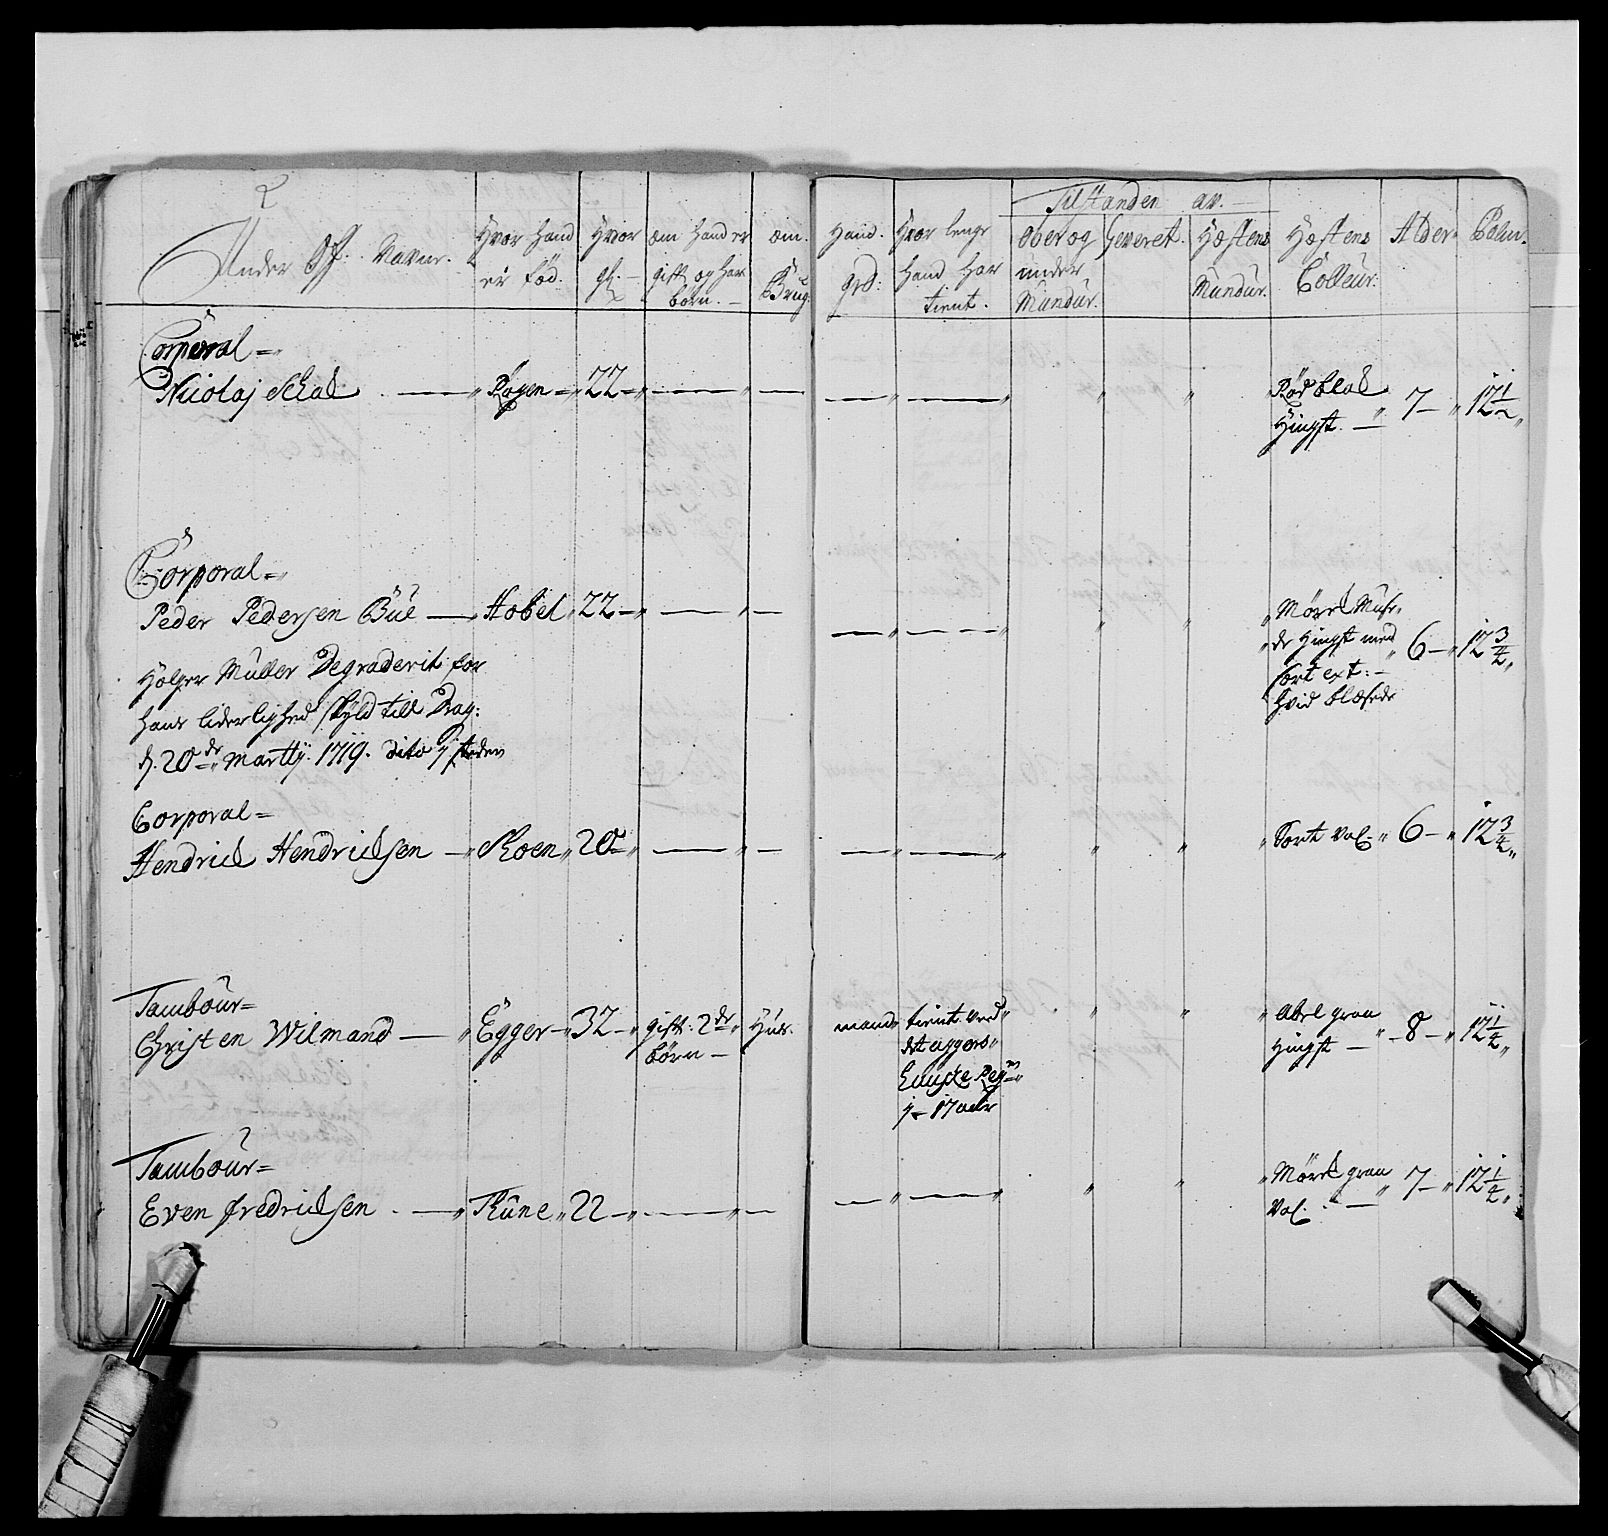 Under Off: Navne.
Hvor hand er fød.
Hvor gl.
om hand er gift og har börn.
om Brug
Hand. grd:
Hvor lenge hand har tient.
Tilstanden av.
Ober og under Mundur.
Geveret.
Hæstens Mundur.
Hæstens Colleur.
Alder
Palm.
Corporal =
Nicolaj Schal — " — " 22 — " — " —
Rød blad Hingst. — " 7 — " 12 1/2 "
Corporal =
Peder Pedersen Büe — " Hobel " 22 — " — " —
" Mörk Hingst med sort ext: — hvid blæsede " 6 — " 12 3/4 "
Holger Muller Degraderit for
hans liderlighed skyld till Drag:
d. 20de Martij. 1719. dito j steden
Corporal =
Hendrich Hendrichsen — " Skoen " 20 — " — " —
" Sort Val. " 6 — " 12 3/4 "
Tambour =
Christen Wilmand — " Egger — " 32 — " gift. 2de börn — " Hus.
mand " tient ved Reg j — 17 aar
" Abel graa Hingst — " 8 — " 12 1/4 "
Tambour =
Even fredrichsen . — " Rüne " 22 — " — " —
" Mörk graa Val. — " 7 — " 12 1/4 "